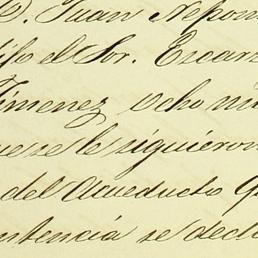 D. Juan Nepom
dijo el Sor. Escar
Jimenez ocho mi
ue se le siguieron
del Acueducto q
ntencia se decl